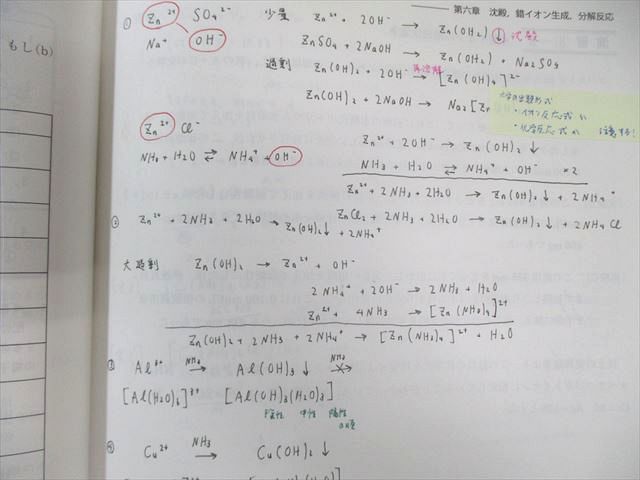 第六章 沈殿, 錯イオン生成, 分解反応
もし(b)
① Zn²⁺ SO₄²⁻ 少量 Zn²⁺ + 2OH⁻ → Zn(OH₂)↓沈殿
Na⁺ OH⁻ ZnSO₄ + 2NaOH → Zn(OH₂) + Na₂SO₄
過剰 Zn(OH)₂ + 2OH⁻ 再溶解 → [Zn(OH)₄]²⁻
Zn(OH)₂ + 2NaOH → Na₂[Zn
・イオン反応式 か
・化学反応式 か 注意する!
Zn²⁺ Cl⁻ Zn²⁺ + 2OH⁻ → Zn(OH)₂↓
NH₃ + H₂O ⇄ NH₄⁺ + OH⁻ NH₃ + H₂O ⇄ NH₄⁺ + OH⁻ ×2
Zn²⁺ + 2NH₃ + 2H₂O → Zn(OH)₂↓ + 2NH₄⁺
② Zn²⁺ + 2NH₃ + 2H₂O → Zn(OH)₂↓ + 2NH₄⁺ ZnCl₂ + 2NH₃ + 2H₂O → Zn(OH)₂↓ + 2NH₄Cl
大過剰 Zn(OH)₂ → Zn²⁺ + OH⁻
2NH₄⁺ + 2OH⁻ → 2NH₃ + H₂O
Zn²⁺ + 4NH₃ → [Zn(NH₃)₄]²⁺
Zn(OH)₂ + 2NH₃ + 2NH₄⁺ → [Zn(NH₃)₄]²⁺ + H₂O
③ Al³⁺ NH₃ → Al(OH)₃↓ NH₃ ↛
[Al(H₂O)₆]³⁺ [Al(OH)₃(H₂O)₃]
陰性 中性 陽性
の順
④ Cu²⁺ NH₃ → Cu(OH)₂↓